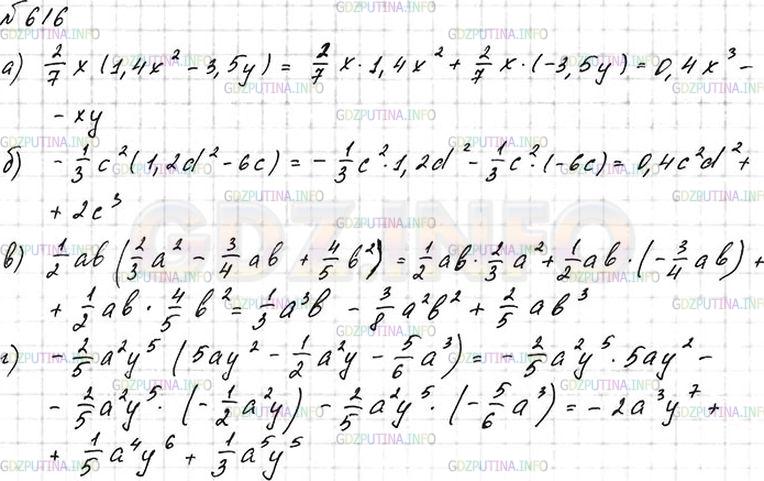 № 616
а) 2/7 x (1,4x² − 3,5y) = 2/7 x · 1,4x² + 2/7 x · (−3,5y) = 0,4x³ −
− xy
б) − 1/3 c² (1,2d² − 6c) = − 1/3 c² · 1,2d² − 1/3 c² · (−6c) = 0,4c²d² +
+ 2c³
в) 1/2 ab (2/3 a² − 3/4 ab + 4/5 b²) = 1/2 ab · 2/3 a² + 1/2 ab · (− 3/4 ab) +
+ 1/2 ab · 4/5 b² = 1/3 a³b − 3/8 a²b² + 2/5 ab³
г) − 2/5 a²y⁵ (5ay² − 1/2 a²y − 5/6 a³) = − 2/5 a²y⁵ · 5ay² −
− 2/5 a²y⁵ · (− 1/2 a²y) − 2/5 a²y⁵ · (− 5/6 a³) = − 2a³y⁷ +
+ 1/5 a⁴y⁶ + 1/3 a⁵y⁵
GDZ.INFO
GDZPUTINA.INFO